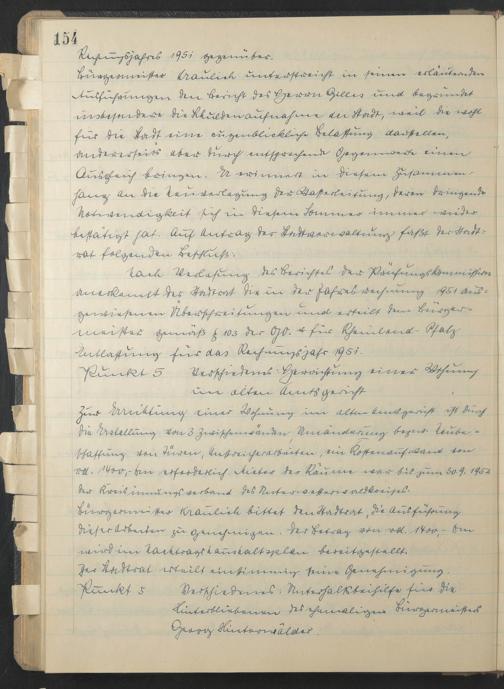 154
Rechnungsjahres 1951 gegenüber.
Bürgermeister Kraulich unterstreicht in seinen erläuternden
Ausführungen den Bericht des Herrn Gilles und begründet
insbesondere die Schuldenaufnahme der Stadt, weil die wohl
für die Stadt eine augenblickliche Belastung darstellen,
andererseits aber durch entsprechende Gegenwerte einen
Ausgleich bringen. Er erinnert in diesem Zusammen-
hang an die Neuverlegung der Wasserleitung, deren dringende
Notwendigkeit sich in diesem Sommer immer wieder
bestätigt hat. Auf Antrag der Stadtverwaltung faßt der Stadt-
rat folgenden Beschluß:
Nach Verlesung des Berichtes der Prüfungskommission
anerkennt der Stadtrat die in der Jahresrechnung 1951 aus-
gewiesenen Überschreitungen und erteilt dem Bürger-
meister gemäß § 103 der GO. für Rheinland-Pfalz
Entlastung für das Rechnungsjahr 1951.
Punkt 5 Verschiedenes: Herrichtung einer Wohnung
im alten Amtsgericht
Zur Errichtung einer Wohnung im alten Amtsgericht ist durch
die Erstellung von 3 Zwischenwänden, Umänderung bezw. Neube-
schaffung von Türen, Anstreicherarbeiten, ein Kostenaufwand von
rd. 1400,- DM erforderlich. Mieter der Räume war bis zum 30.9.1952
der Kreisinnungsverband des Unterwesterwaldkreises.
Bürgermeister Kraulich bittet den Stadtrat, die Ausführung
dieser Arbeiten zu genehmigen. Der Betrag von rd. 1400,- DM
wird im Nachtragshaushaltsplan bereitgestellt.
Der Stadtrat erteilt einstimmig seine Genehmigung.
Punkt 5 Verschiedenes: Unterhaltsbeihilfe für die
Hinterbliebenen des ehemaligen Bürgermeisters
Georg Hinterwälder.